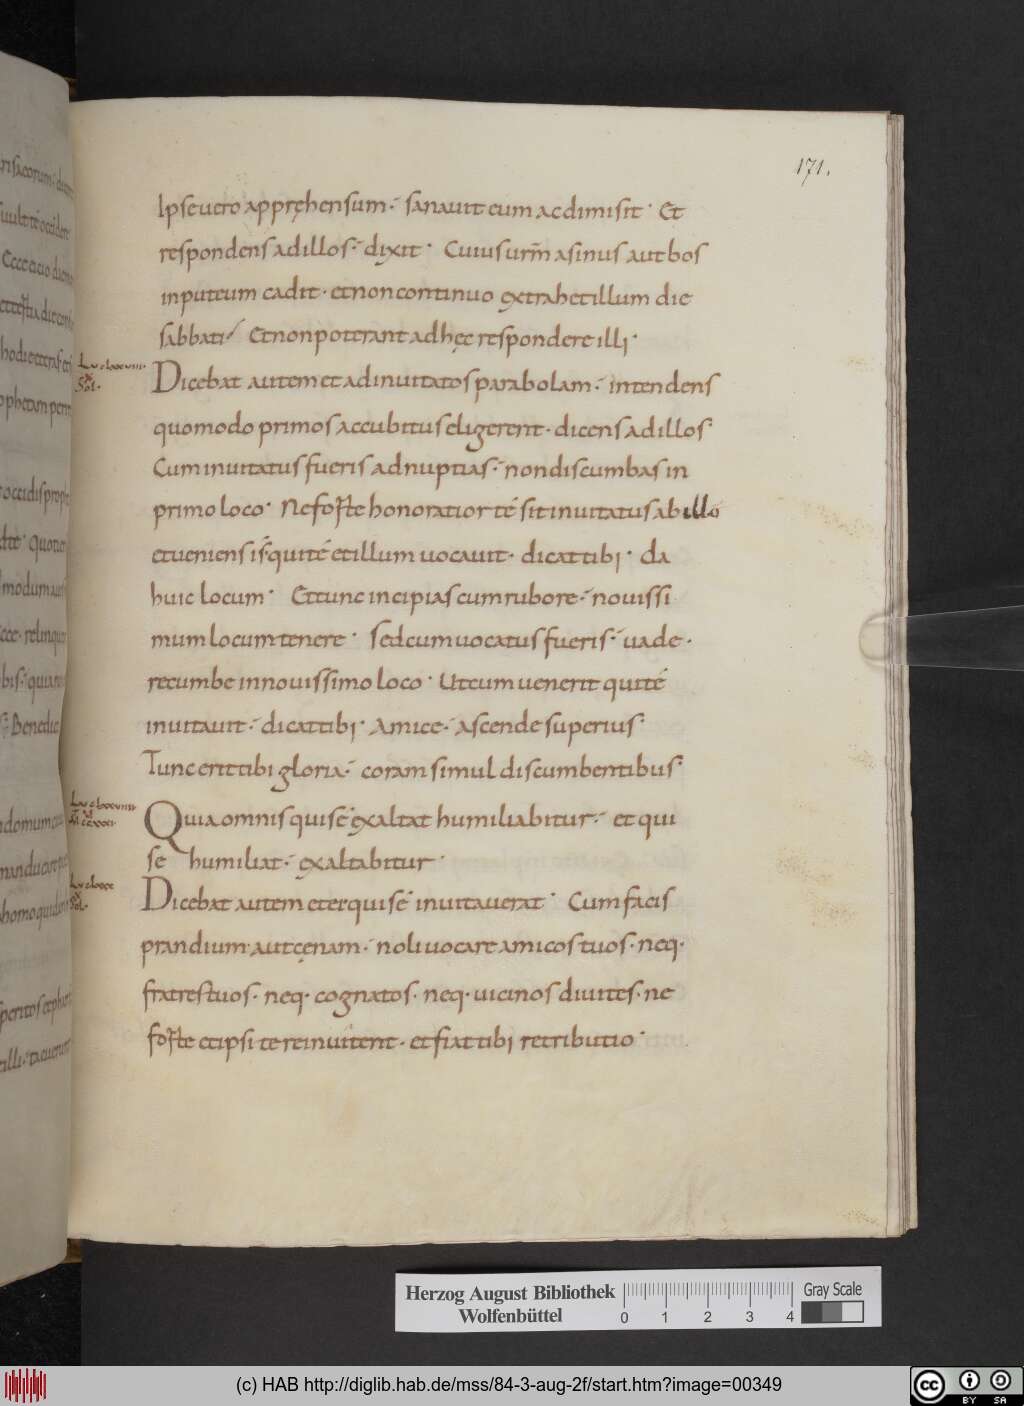 171.
Ipse uero appręhensum· sanauit eum ac dimisit· Et
respondens ad illos· dixit· Cuius urm̄ asinus aut bos
in puteum cadit· et non continuo extrahet illum die
sabbati? Et non poterant ad hęc respondere illi·
Dicebat autem et ad inuitatos parabolam· intendens
quomodo primos accubitus eligerent· dicens ad illos·
Cum inuitatus fueris ad nuptias· non discumbas in
primo loco· Ne forte honoratior té sit inuitatus ab illo
et ueniens is qui té et illum uocauit· dicat tibi· da
huic locum· Et tunc incipias cum rubore· nouissi
mum locum tenere· Sed cum uocatus fueris· uade·
recumbe in nouissimo loco· Ut cum uenerit qui té
inuitauit· dicat tibi· Amice· ascende superius·
Tunc erit tibi gloria· coram simul discumbentibus·
Quia omnis qui sé exaltat humiliabitur· et qui
se humiliat· exaltabitur·
Dicebat autem et ei qui sé inuitauerat· Cum facis
prandium aut cęnam· noli uocare amicos tuos· neq·
fratres tuos· neq· cognatos· neq· uicinos diuites· ne
forte et ipsi te reinuitent· et fiat tibi retributio·
Herzog August Bibliothek
Wolfenbüttel
0 1 2 3 4
Gray Scale
(c) HAB http://diglib.hab.de/mss/84-3-aug-2f/start.htm?image=00349
cc BY SA